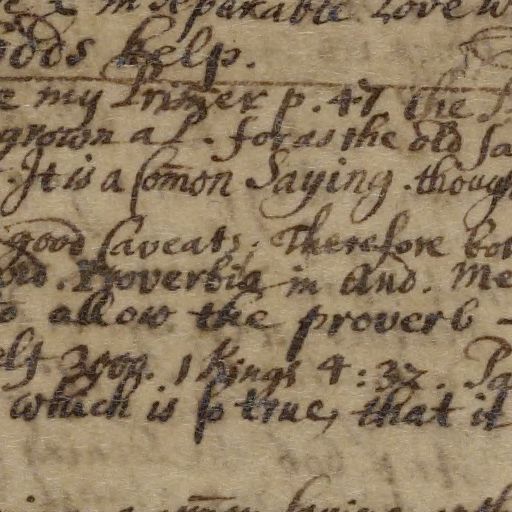 inseparable Love
Gods help.
my Primer p. 47 the
grown as. for as the old
It is a Com̃on Saying. though
good Caveats. Therefore
Proverbia in And. Me
allow the proverb -
3000. 1 Kings 4:32.
which is so true, that it